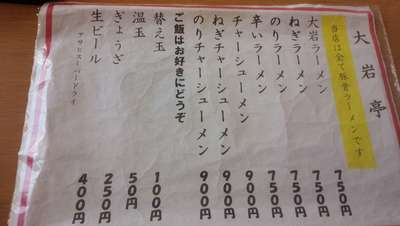 大岩亭
当店は全て豚骨ラーメンです
大岩ラーメン 750円
ねぎラーメン 750円
のりラーメン 750円
辛いラーメン 750円
チャーシューメン 900円
ねぎチャーシューメン 900円
のりチャーシューメン 900円
ご飯はお好きにどうぞ
替え玉 100円
温玉 50円
ぎょうざ 250円
生ビール 400円
アサヒスーパードライ